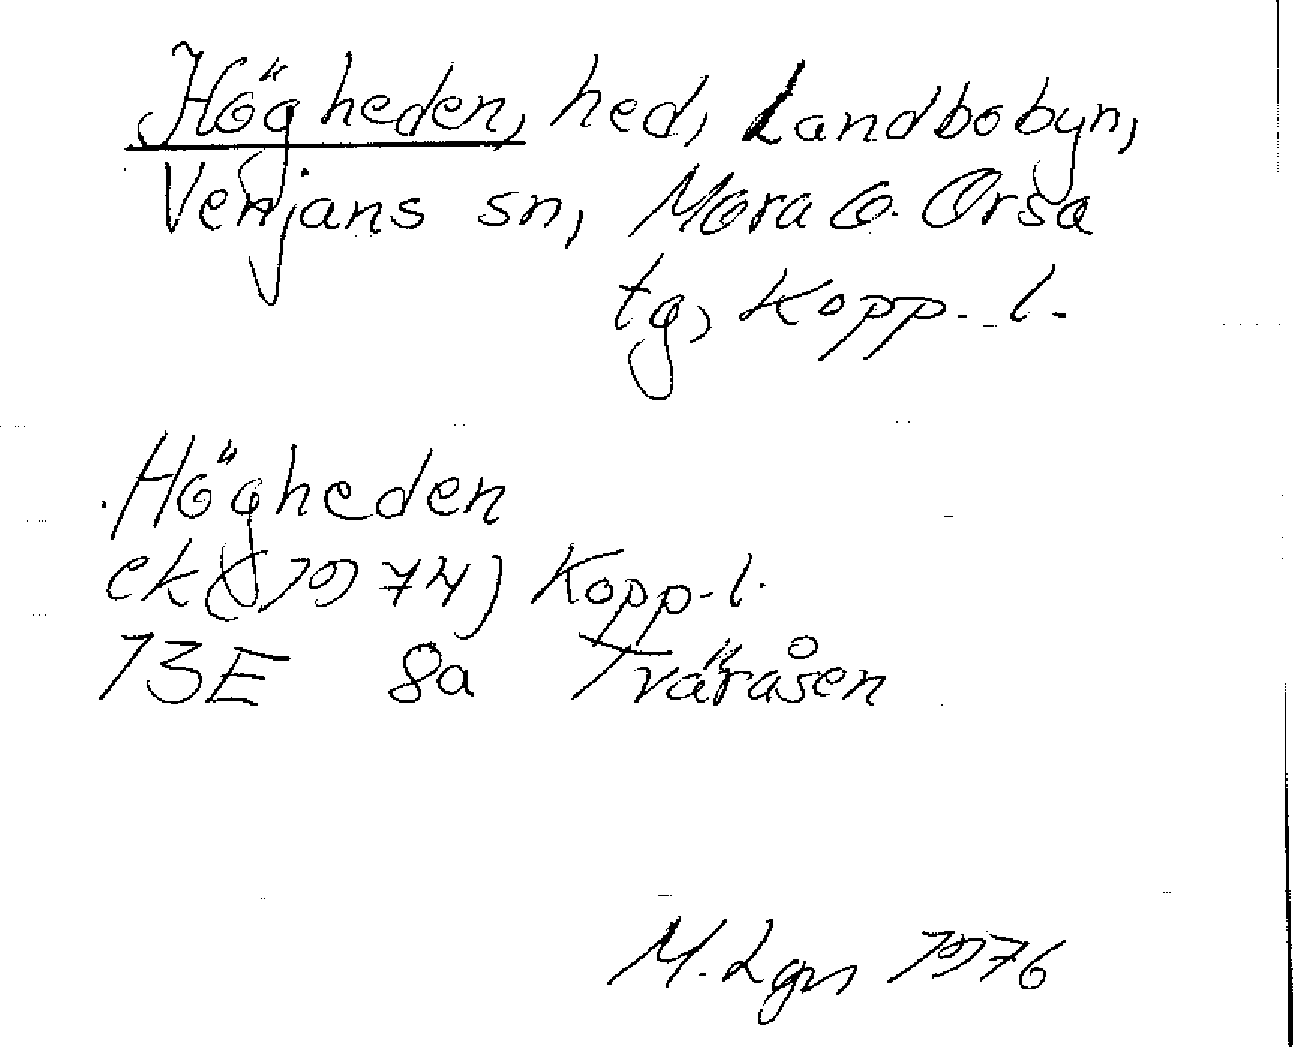 Högheden, hed, Landbobyn,
Venjans sn, Mora o. Orsa
tg, Kopp. l.
Högheden
ek (1974) Kopp-l.
13E 8a Tväråsen
M. Lgn 1976